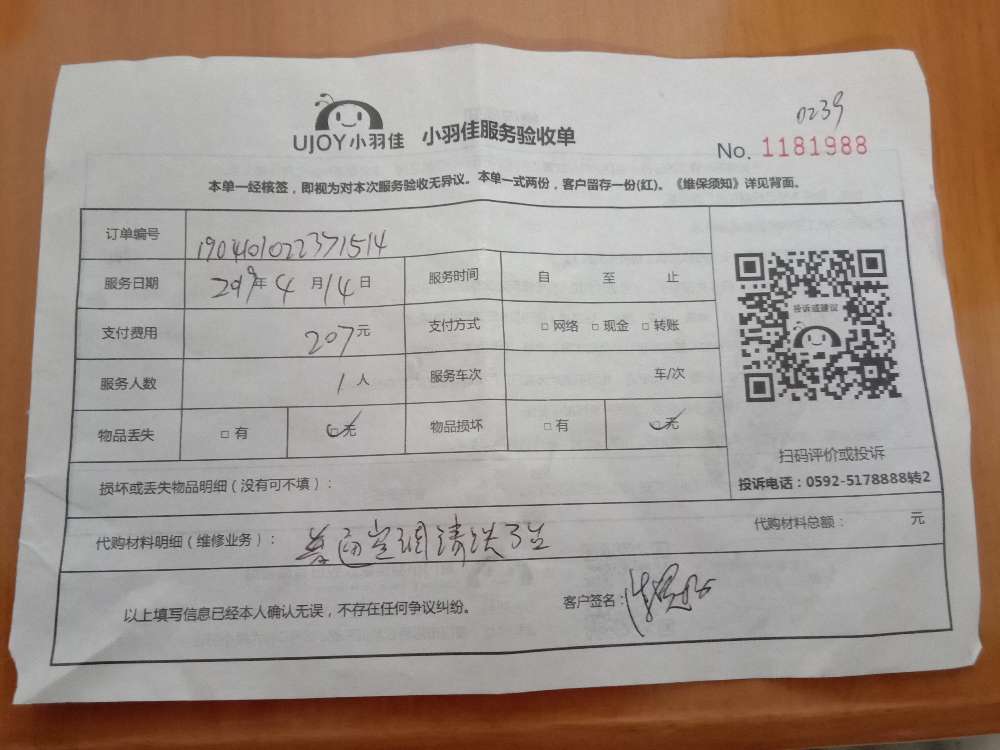 0239
UJOY小羽佳 小羽佳服务验收单 No. 1181988
本单一经核签，即视为对本次服务验收无异议。本单一式两份，客户留存一份(红)。《维保须知》详见背面。
订单编号 1904101022371514
服务日期 2019年4月14日 服务时间 自 至 止
支付费用 207元 支付方式 □网络 □现金 □转账
服务人数 1人 服务车次 车/次
物品丢失 □有 □无 物品损坏 □有 □无
投诉或建议
扫码评价或投诉
投诉电话：0592-5178888转2
损坏或丢失物品明细（没有可不填）：
代购材料明细（维修业务）： 普通空调清洗3台 代购材料总额： 元
以上填写信息已经本人确认无误，不存在任何争议纠纷。 客户签名：